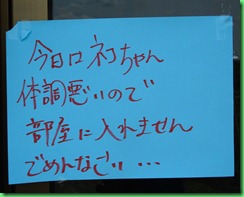 今日ロネコちゃん
体調悪いので
部屋に入れません
でめんなさい...